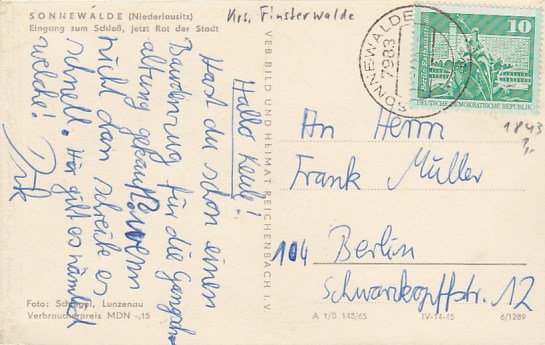 SONNEWALDE (Niederlausitz)
Eingang zum Schloß, jetzt Rat der Stadt
Krs. Finsterwalde
Hallo Keule!
Hast du schon einen
Bauderzug für die
altung gekauft? wenn
nicht dan schreibe es
schnell. Hir gilt es nämlich
welche!
Dirk
Foto: Schlegel, Lunzenau
Verbraucherpreis MDN -,15
VEB BILD UND HEIMAT REICHENBACH I. V.
SONNEWALDE
7983
10
DEUTSCHE DEMOKRATISCHE REPUBLIK
1843
An Herrn
Frank Müller
104 Berlin
Schwarzkopffstr. 12
A 1/B 148/65 IV-14-45 6/1289